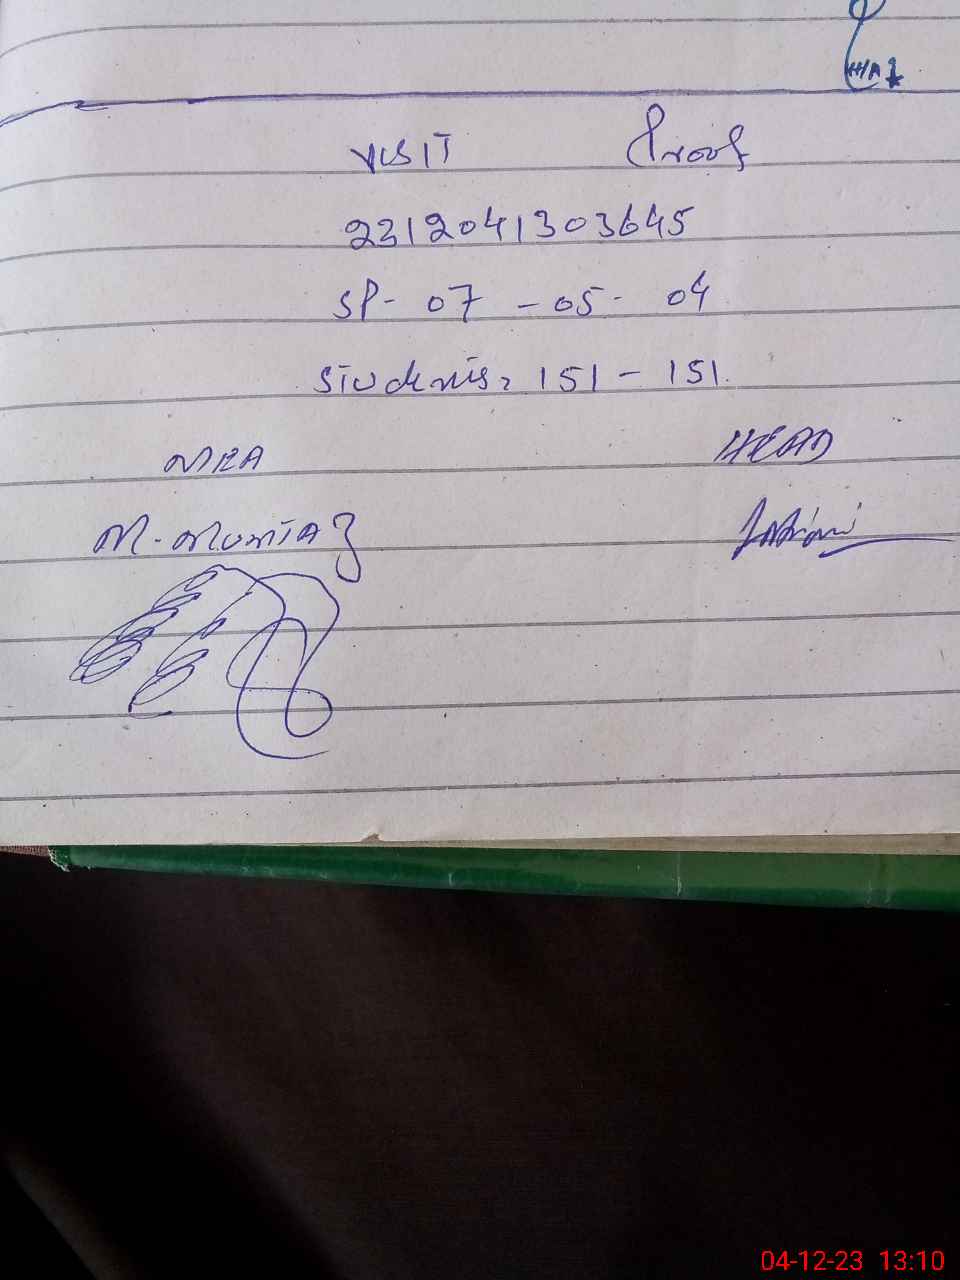 VISIT Proof
2312041303645
SP- 07 - 05 - 04
Students, 151 - 151.
MEA HEAD
M. Mumtaz
04-12-23 13:10